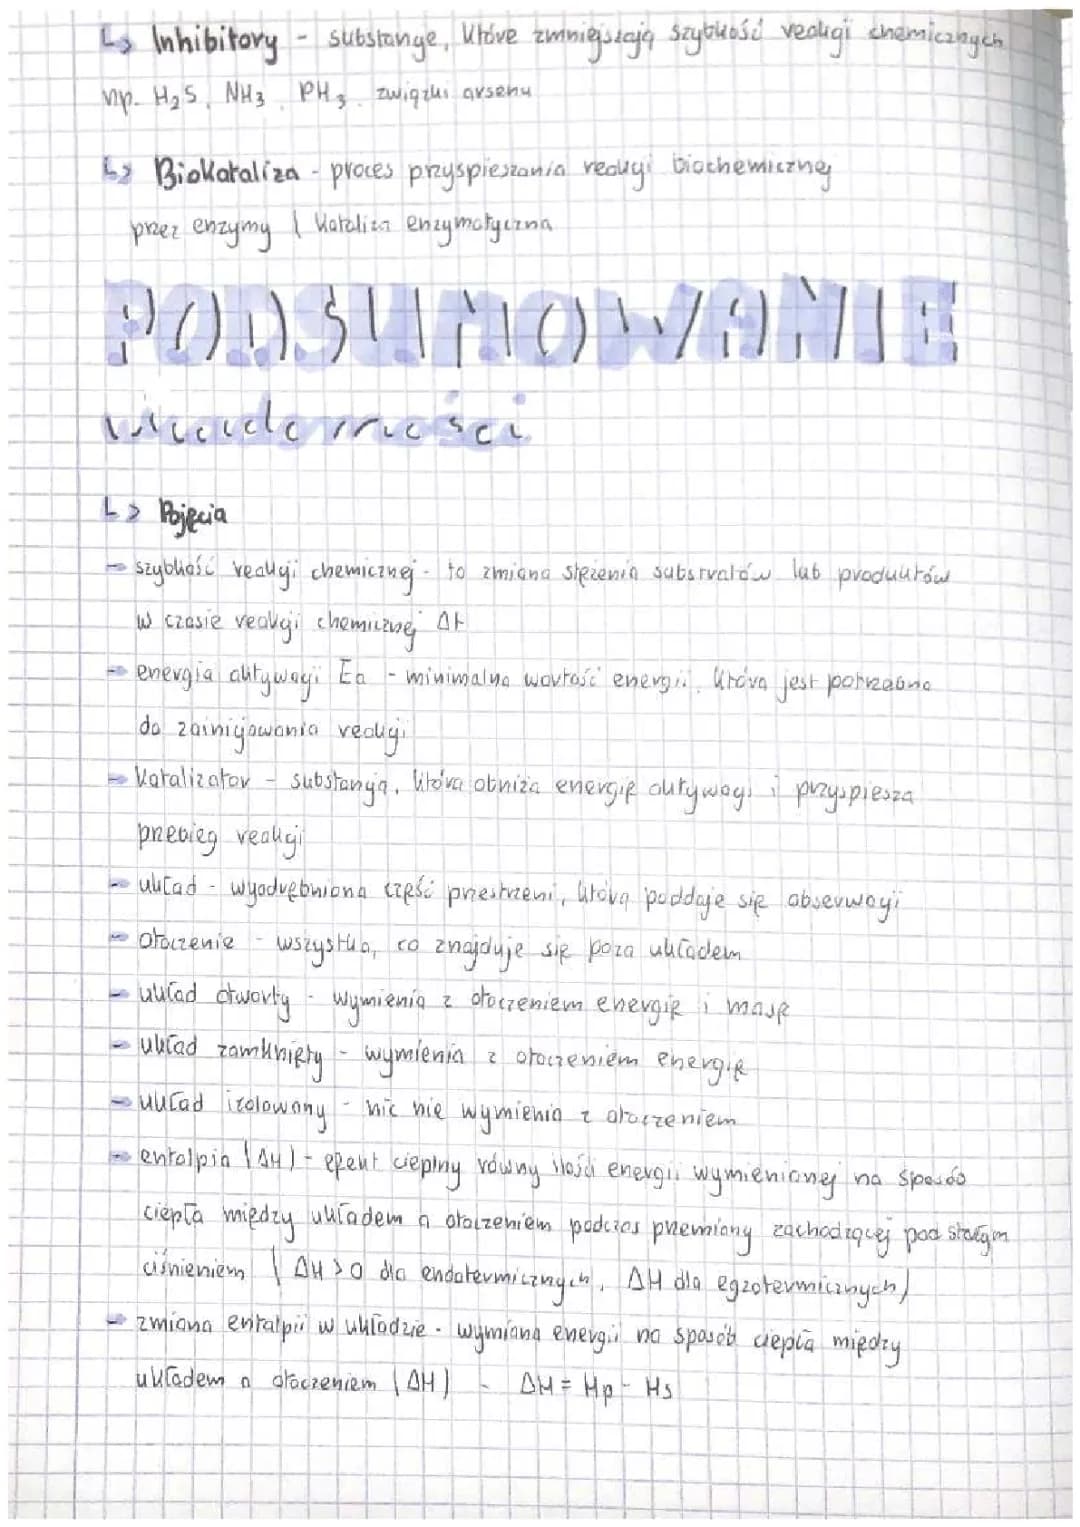 ↳ Inhibitory - substancje, które zmniejszają szybkość reakcji chemicznych
np. H₂S, NH₃, PH₃, związki arsenu
↳ Biokataliza - proces przyspieszania reakcji biochemicznej
przez enzymy ( kataliza enzymatyczna
PODSUMOWANIE
wiadomości
↳ Pojęcia
→ szybkość reakcji chemicznej - to zmiana stężenia substratów lub produktów
w czasie reakcji chemicznej Δt
→ energia aktywacji Ea - minimalna wartość energii, która jest potrzebna
do zainicjowania reakcji
→ katalizator - substancja, która obniża energię aktywacji i przyspiesza
przebieg reakcji
→ układ - wyodrębniona część przestrzeni, którą poddaje się obserwacji
→ otoczenie - wszystko, co znajduje się poza układem
→ układ otwarty - wymienia z otoczeniem energię i masę
→ układ zamknięty - wymienia z otoczeniem energię
→ układ izolowany - nic nie wymienia z otoczeniem
→ entalpia (ΔH) - efekt cieplny równy ilości energii wymienionej na sposób
ciepła między układem a otoczeniem podczas przemiany zachodzącej pod stałym
ciśnieniem ( ΔH > 0 dla endotermicznych, ΔH dla egzotermicznych)
→ zmiana entalpii w układzie - wymiana energii na sposób ciepła między
układem a otoczeniem (ΔH) - ΔH = Hp - Hs